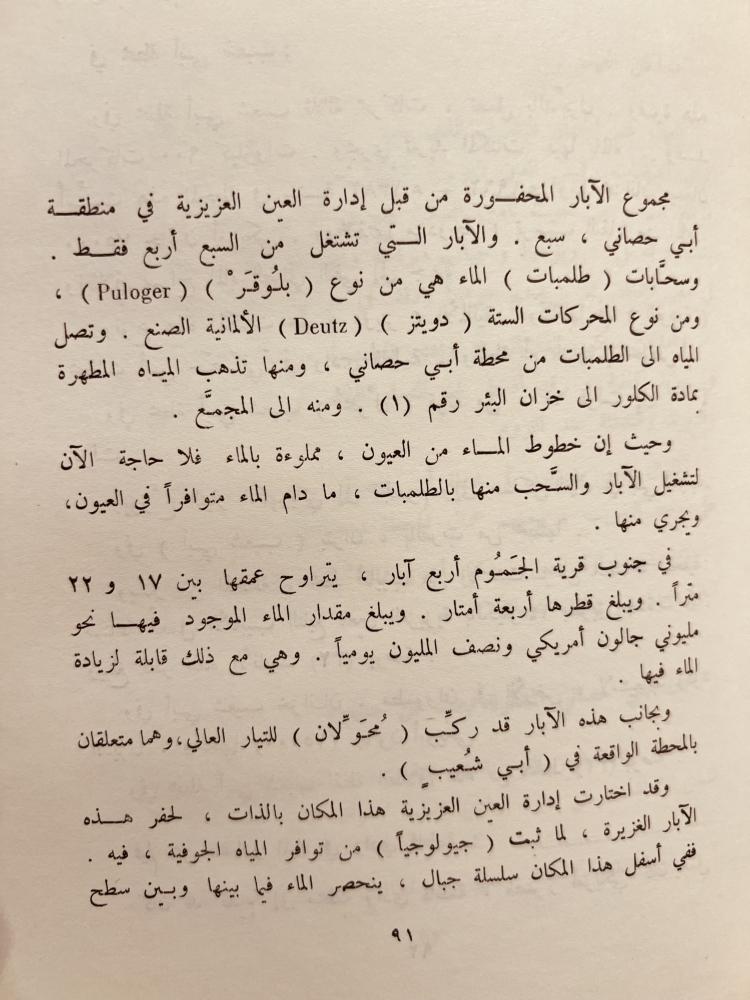 مجموع الآبار المحفـــورة من قبل إدارة العين العزيزية في منطقـــة
أبـي حصاني ، سبع . والآبار الـــتي تشتغل من السبع أربع فقـــط .
وسحَّابات ( طلمبات ) الماء هي من نوع ( بلُـوقـَرْ ) ( Puloger ) ،
ومن نوع المحركات الستة ( دويتز ) ( Deutz ) الألمانية الصنع . وتصل
المياه الى الطلمبات من محطة أبـي حصاني ، ومنها تذهب الميـاه المطهرة
بمادة الكلور الى خزان البئر رقم (١) . ومنه الى المجمَّع .
وحيث إن خطوط المـــاء من العيون ، مملوءة بالماء فلا حاجة الآن
لتشغيل الآبار والسَّحب منها بالطلمبات ، ما دام الماء متوافراً في العيون،
ويجري منها .
في جنوب قرية الجَمُوم أربع آبار ، يتراوح عمقها بين ١٧ و ٢٢
متراً . ويبلغ قطرها أربعة أمتار . ويبلغ مقدار الماء الموجود فيهـــا نحو
مليوني جالون أمريكي ونصف المليون يومياً . وهي مع ذلك قابلة لزيادة
الماء فيها .
وبجانب هذه الآبار قد ركِّبَ ( مُحَوِّلان ) للتيار العالي، وهما متعلقان
بالمحطة الواقعة في ( أبـي شُعيبٍ ) .
وقد اختارت إدارة العين العزيزية هذا المكان بالذات ، لحفر هـــذه
الآبار الغزيرة ، لما ثبت ( جيولوجياً ) من توافر المياه الجوفية ، فيه .
ففي أسفل هذا المكان سلسلة جبال ، ينحصر الماء فيما بينها وبـين سطح
٩١